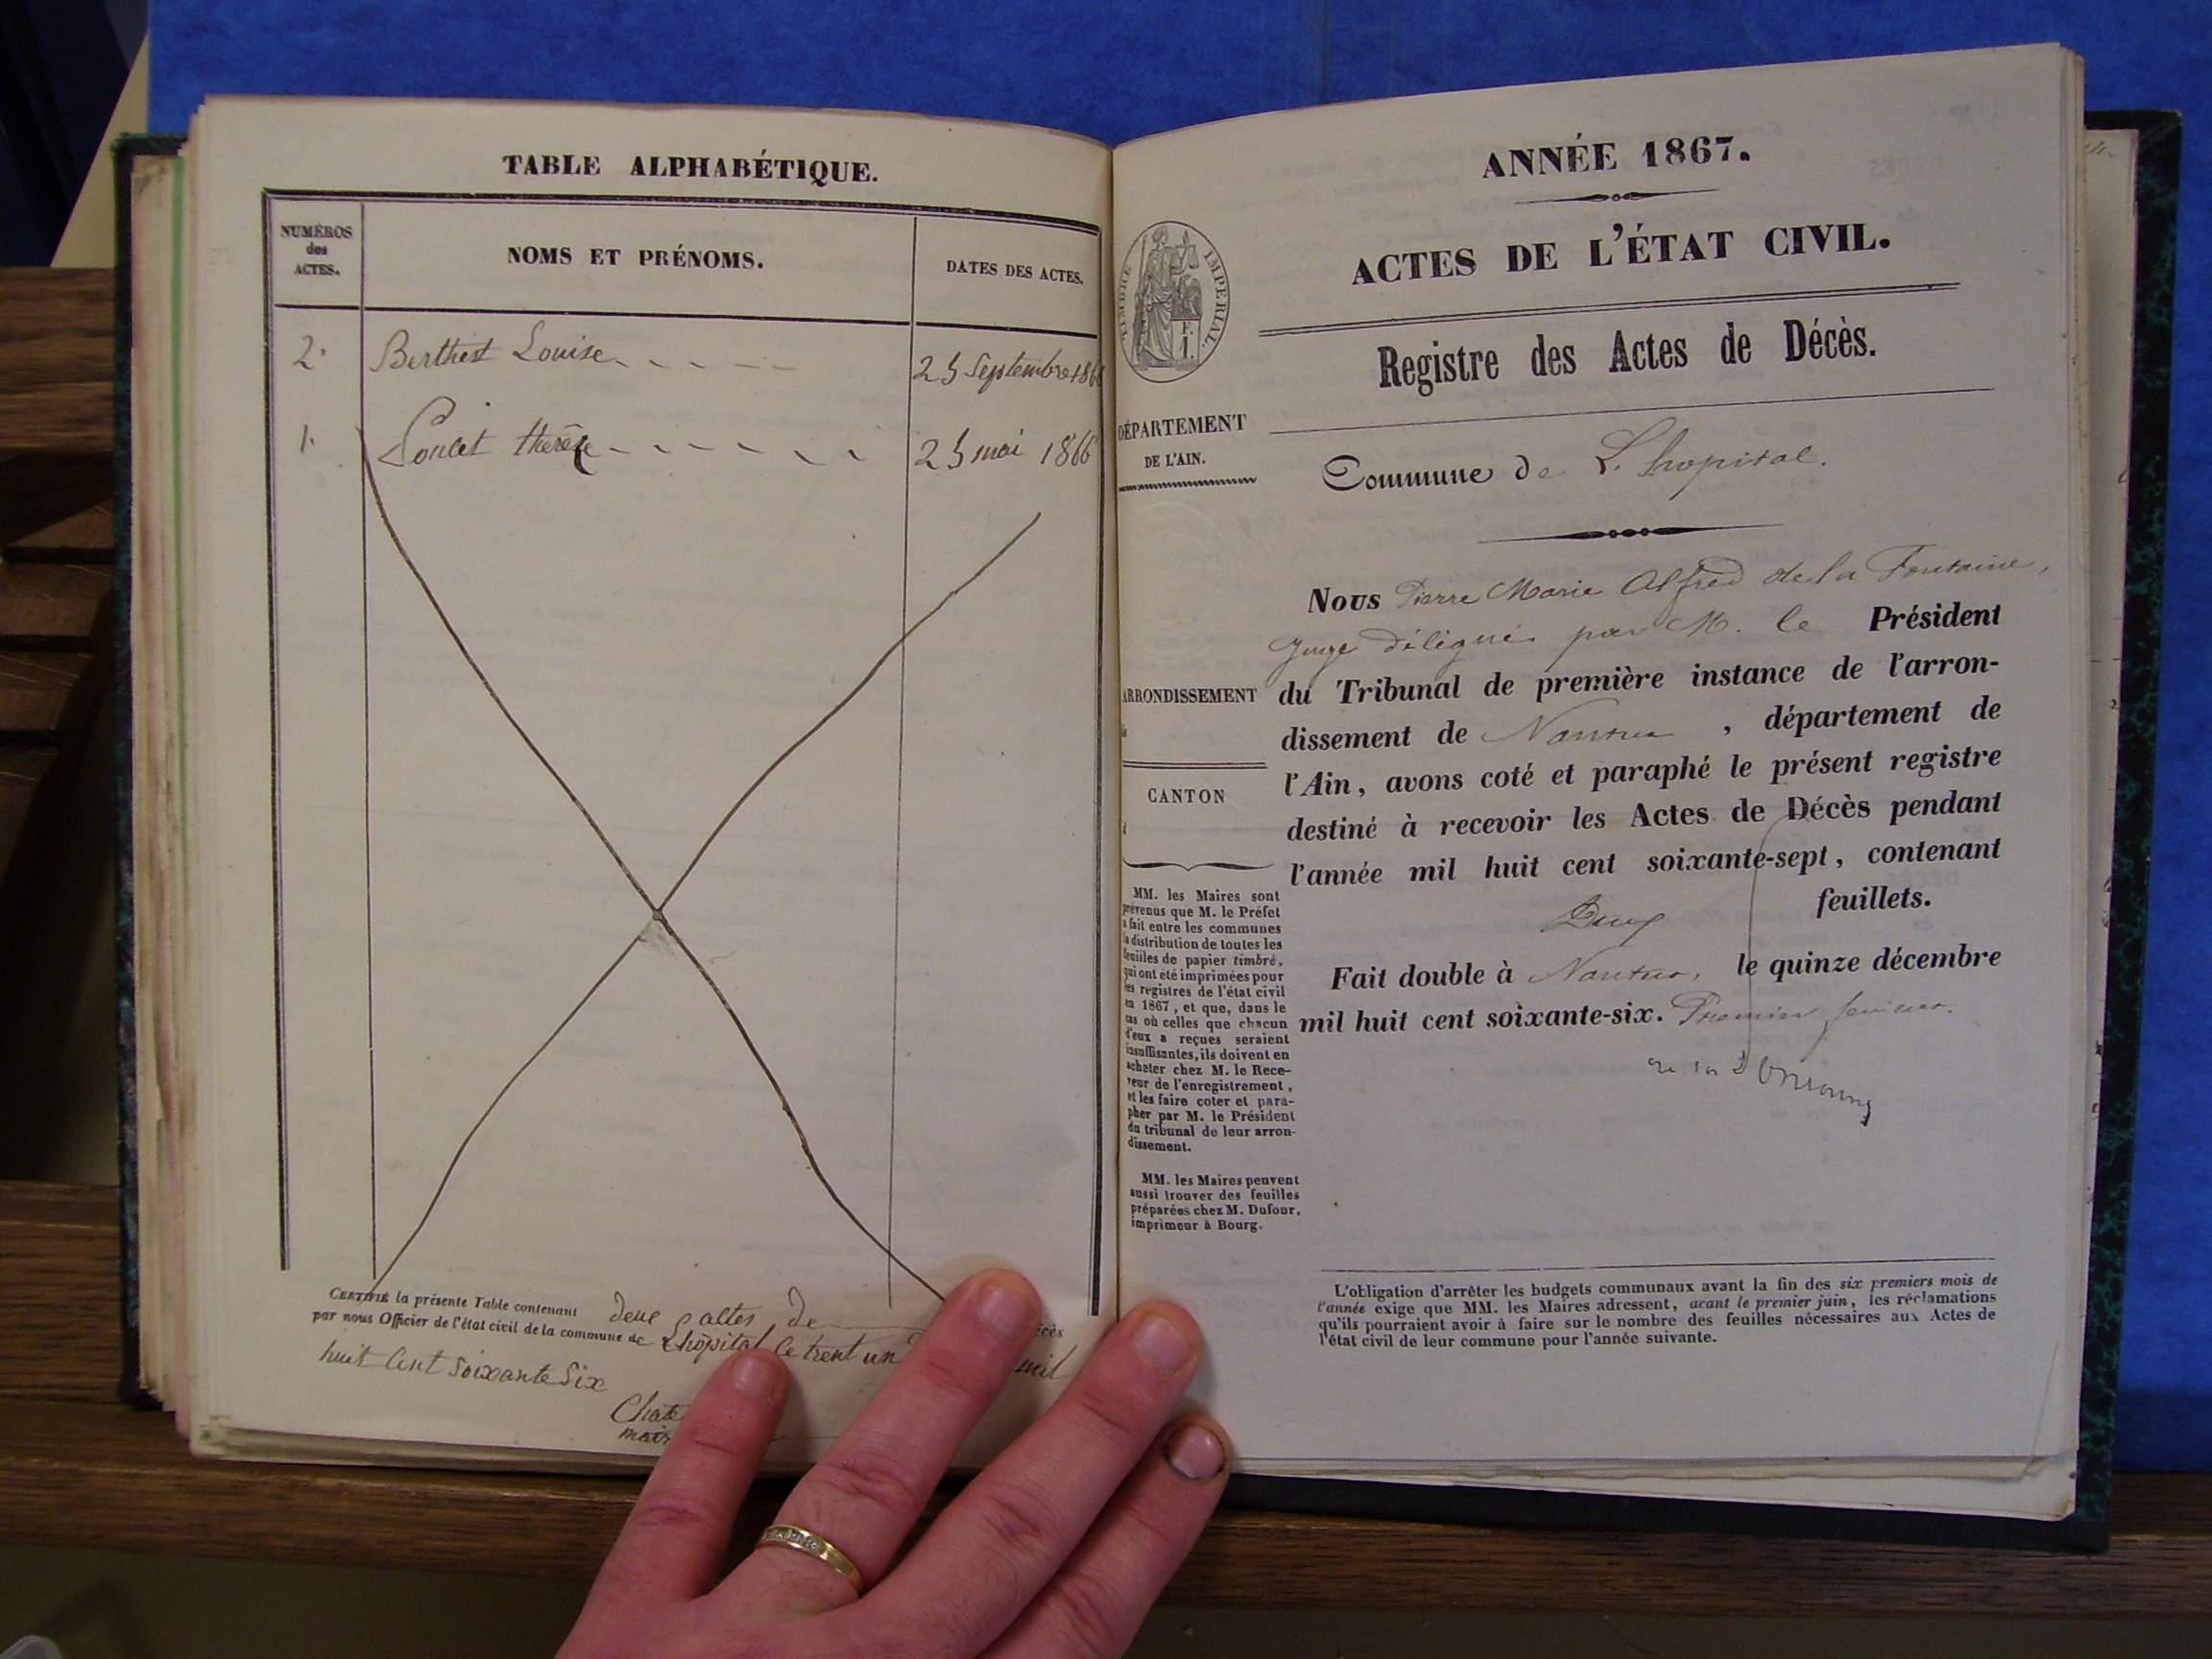 TABLE ALPHABÉTIQUE.
NUMÉROS
des
ACTES.
NOMS ET PRÉNOMS.
DATES DES ACTES.
2. Berthet Louise 25 Septembre 186
1. Poncet therèse 25 mai 1866
CERTIFIÉ la présente Table contenant deux actes de
par nous Officier de l'état civil de la commune de Lhôpital ce trent un mil
huit Cent Soixante Six
Chate
mair
ANNÉE 1867.
ACTES DE L'ÉTAT CIVIL.
TIMBRE IMPERIAL.
Registre des Actes de Décès.
DÉPARTEMENT
DE L'AIN.
Commune de L'hopital.
Nous Pierre Marie Alfred de la Fontaine,
Juge délégué par M. le Président
ARRONDISSEMENT
du Tribunal de première instance de l'arron-
dissement de Nantua, département de
l'Ain, avons coté et paraphé le présent registre
destiné à recevoir les Actes de Décès pendant
l'année mil huit cent soixante-sept, contenant
Deux feuillets.
Fait double à Nantua, le quinze décembre
mil huit cent soixante-six. Premier
CANTON
MM. les Maires sont
prévenus que M. le Préfet
a fait entre les communes
la distribution de toutes les
feuilles de papier timbré,
qui ont été imprimées pour
les registres de l'état civil
en 1867, et que, dans le
cas où celles que chacun
d'eux a reçues seraient
insuffisantes, ils doivent en
acheter chez M. le Rece-
veur de l'enregistrement,
et les faire coter et para-
pher par M. le Président
du tribunal de leur arron-
dissement.
MM. les Maires peuvent
aussi trouver des feuilles
préparées chez M. Dufour,
imprimeur à Bourg.
L'obligation d'arrêter les budgets communaux avant la fin des six premiers mois de
l'année exige que MM. les Maires adressent, avant le premier juin, les réclamations
qu'ils pourraient avoir à faire sur le nombre des feuilles nécessaires aux Actes de
l'état civil de leur commune pour l'année suivante.